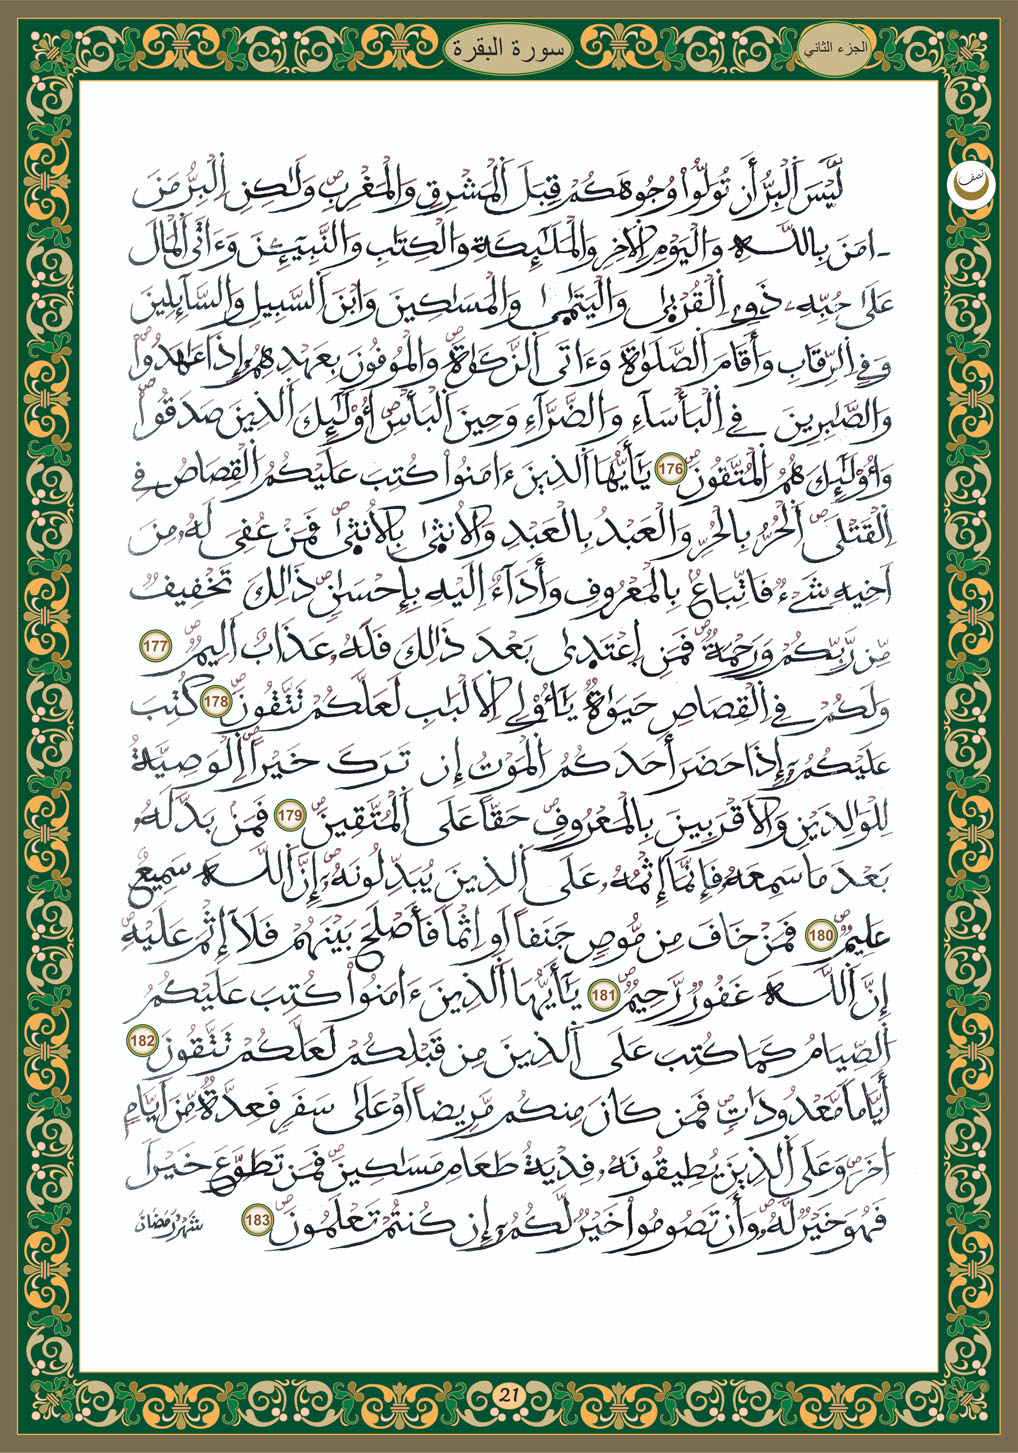 الجزء الثاني
سورة البقرة
نصف
لَّيْسَ اَ۬لْبِرُّ أَن تُوَلُّواْ وُجُوهَكُمْ قِبَلَ اَ۬لْمَشْرِقِ وَالْمَغْرِبِۖ وَلَٰكِنِ اِ۬لْبِرُّ مَنَ
ـ امَنَ بِاللَّهِ وَالْيَوْمِ اِ۬لَاخِرِ وَالْمَلَٰٓئِكَةِ وَالْكِتَٰبِ وَالنَّبِيٓـِٕۧنَ وَءَاتَى اَ۬لْمَالَ
عَلَىٰ حُبِّهِۦ ذَوِے اِ۬لْقُرْبىٰ وَالْيَتَٰمىٰ وَالْمَسَٰكِينَ وَابْنَ اَ۬لسَّبِيلِ وَالسَّآئِلِينَ
وَفِے اِ۬لرِّقَابِ وَأَقَامَ اَ۬لصَّلَوٰةَ وَءَاتَى اَ۬لزَّكَوٰةَۖ وَالْمُوفُونَ بِعَهْدِهِمُۥٓ إِذَا عَٰهَدُواْۖ
وَالصَّٰبِرِينَ فِے اِ۬لْبَأْسَآءِ وَالضَّرَّآءِ وَحِينَ اَ۬لْبَأْسِۖ أُوْلَٰٓئِكَ اَ۬لذِينَ صَدَقُواْۖ
وَأُوْلَٰٓئِكَ هُمُ اُ۬لْمُتَّقُونَۖ 176 يَٰٓأَيُّهَا اَ۬لذِينَ ءَامَنُواْ كُتِبَ عَلَيْكُمُ اُ۬لْقِصَاصُ فِے
اِ۬لْقَتْلَىۖ اَ۬لْحُرُّ بِالْحُرِّ وَالْعَبْدُ بِالْعَبْدِ وَالُانثىٰ بِالُانثىٰۖ فَمَنْ عُفِيَ لَهُۥ مِنَ
اَخِيهِ شَےْءٞ فَاتِّبَاعُۢ بِالْمَعْرُوفِ وَأَدَآءٌ اِلَيْهِ بِإِحْسَٰنٖۖ ذَٰلِكَ تَخْفِيفٞ
مِّن رَّبِّكُمْ وَرَحْمَةٞۖ فَمَنِ اِ۪عْتَدىٰ بَعْدَ ذَٰلِكَ فَلَهُۥ عَذَابٌ اَلِيمٞۖ 177
وَلَكُمْ فِے اِ۬لْقِصَاصِ حَيَوٰةٞ يَٰٓأُوْلِے اِ۬لَالْبَٰبِ لَعَلَّكُمْ تَتَّقُونَۖ 178 كُتِبَ
عَلَيْكُمُۥٓ إِذَا حَضَرَ أَحَدَكُمُ اُ۬لْمَوْتُ إِن تَرَكَ خَيْراًۖ اِ۬لْوَصِيَّةُ
لِلْوَٰلِدَيْنِ وَالَاقْرَبِينَ بِالْمَعْرُوفِۖ حَقّاً عَلَى اَ۬لْمُتَّقِينَۖ 179 فَمَنۢ بَدَّلَهُۥ
بَعْدَ مَا سَمِعَهُۥ فَإِنَّمَآ إِثْمُهُۥ عَلَى اَ۬لذِينَ يُبَدِّلُونَهُۥٓۖ إِنَّ اَ۬للَّهَ سَمِيعٌ
عَلِيمٞۖ 180 فَمَنْ خَافَ مِن مُّوصٖ جَنَفاً اَوِ اِثْماً فَأَصْلَحَ بَيْنَهُمْ فَلَآ إِثْمَ عَلَيْهِۖ
إِنَّ اَ۬للَّهَ غَفُورٞ رَّحِيمٞۖ 181 يَٰٓأَيُّهَا اَ۬لذِينَ ءَامَنُواْ كُتِبَ عَلَيْكُمُ
اُ۬لصِّيَامُ كَمَا كُتِبَ عَلَى اَ۬لذِينَ مِن قَبْلِكُمْ لَعَلَّكُمْ تَتَّقُونَۖ 182
أَيَّاماٗ مَّعْدُودَٰتٖۖ فَمَن كَانَ مِنكُم مَّرِيضاً اَوْ عَلَىٰ سَفَرٖ فَعِدَّةٞ مِّنَ اَيَّامٍ
اُخَرَۖ وَعَلَى اَ۬لذِينَ يُطِيقُونَهُۥ فِدْيَةُ طَعَامِ مَسَٰكِينَۖ فَمَن تَطَوَّعَ خَيْراٗ
فَهُوَ خَيْرٞ لَّهُۥۖ وَأَن تَصُومُواْ خَيْرٞ لَّكُمُۥٓ إِن كُنتُمْ تَعْلَمُونَۖ 183 شَهْرُ رَمَضَانَ
21